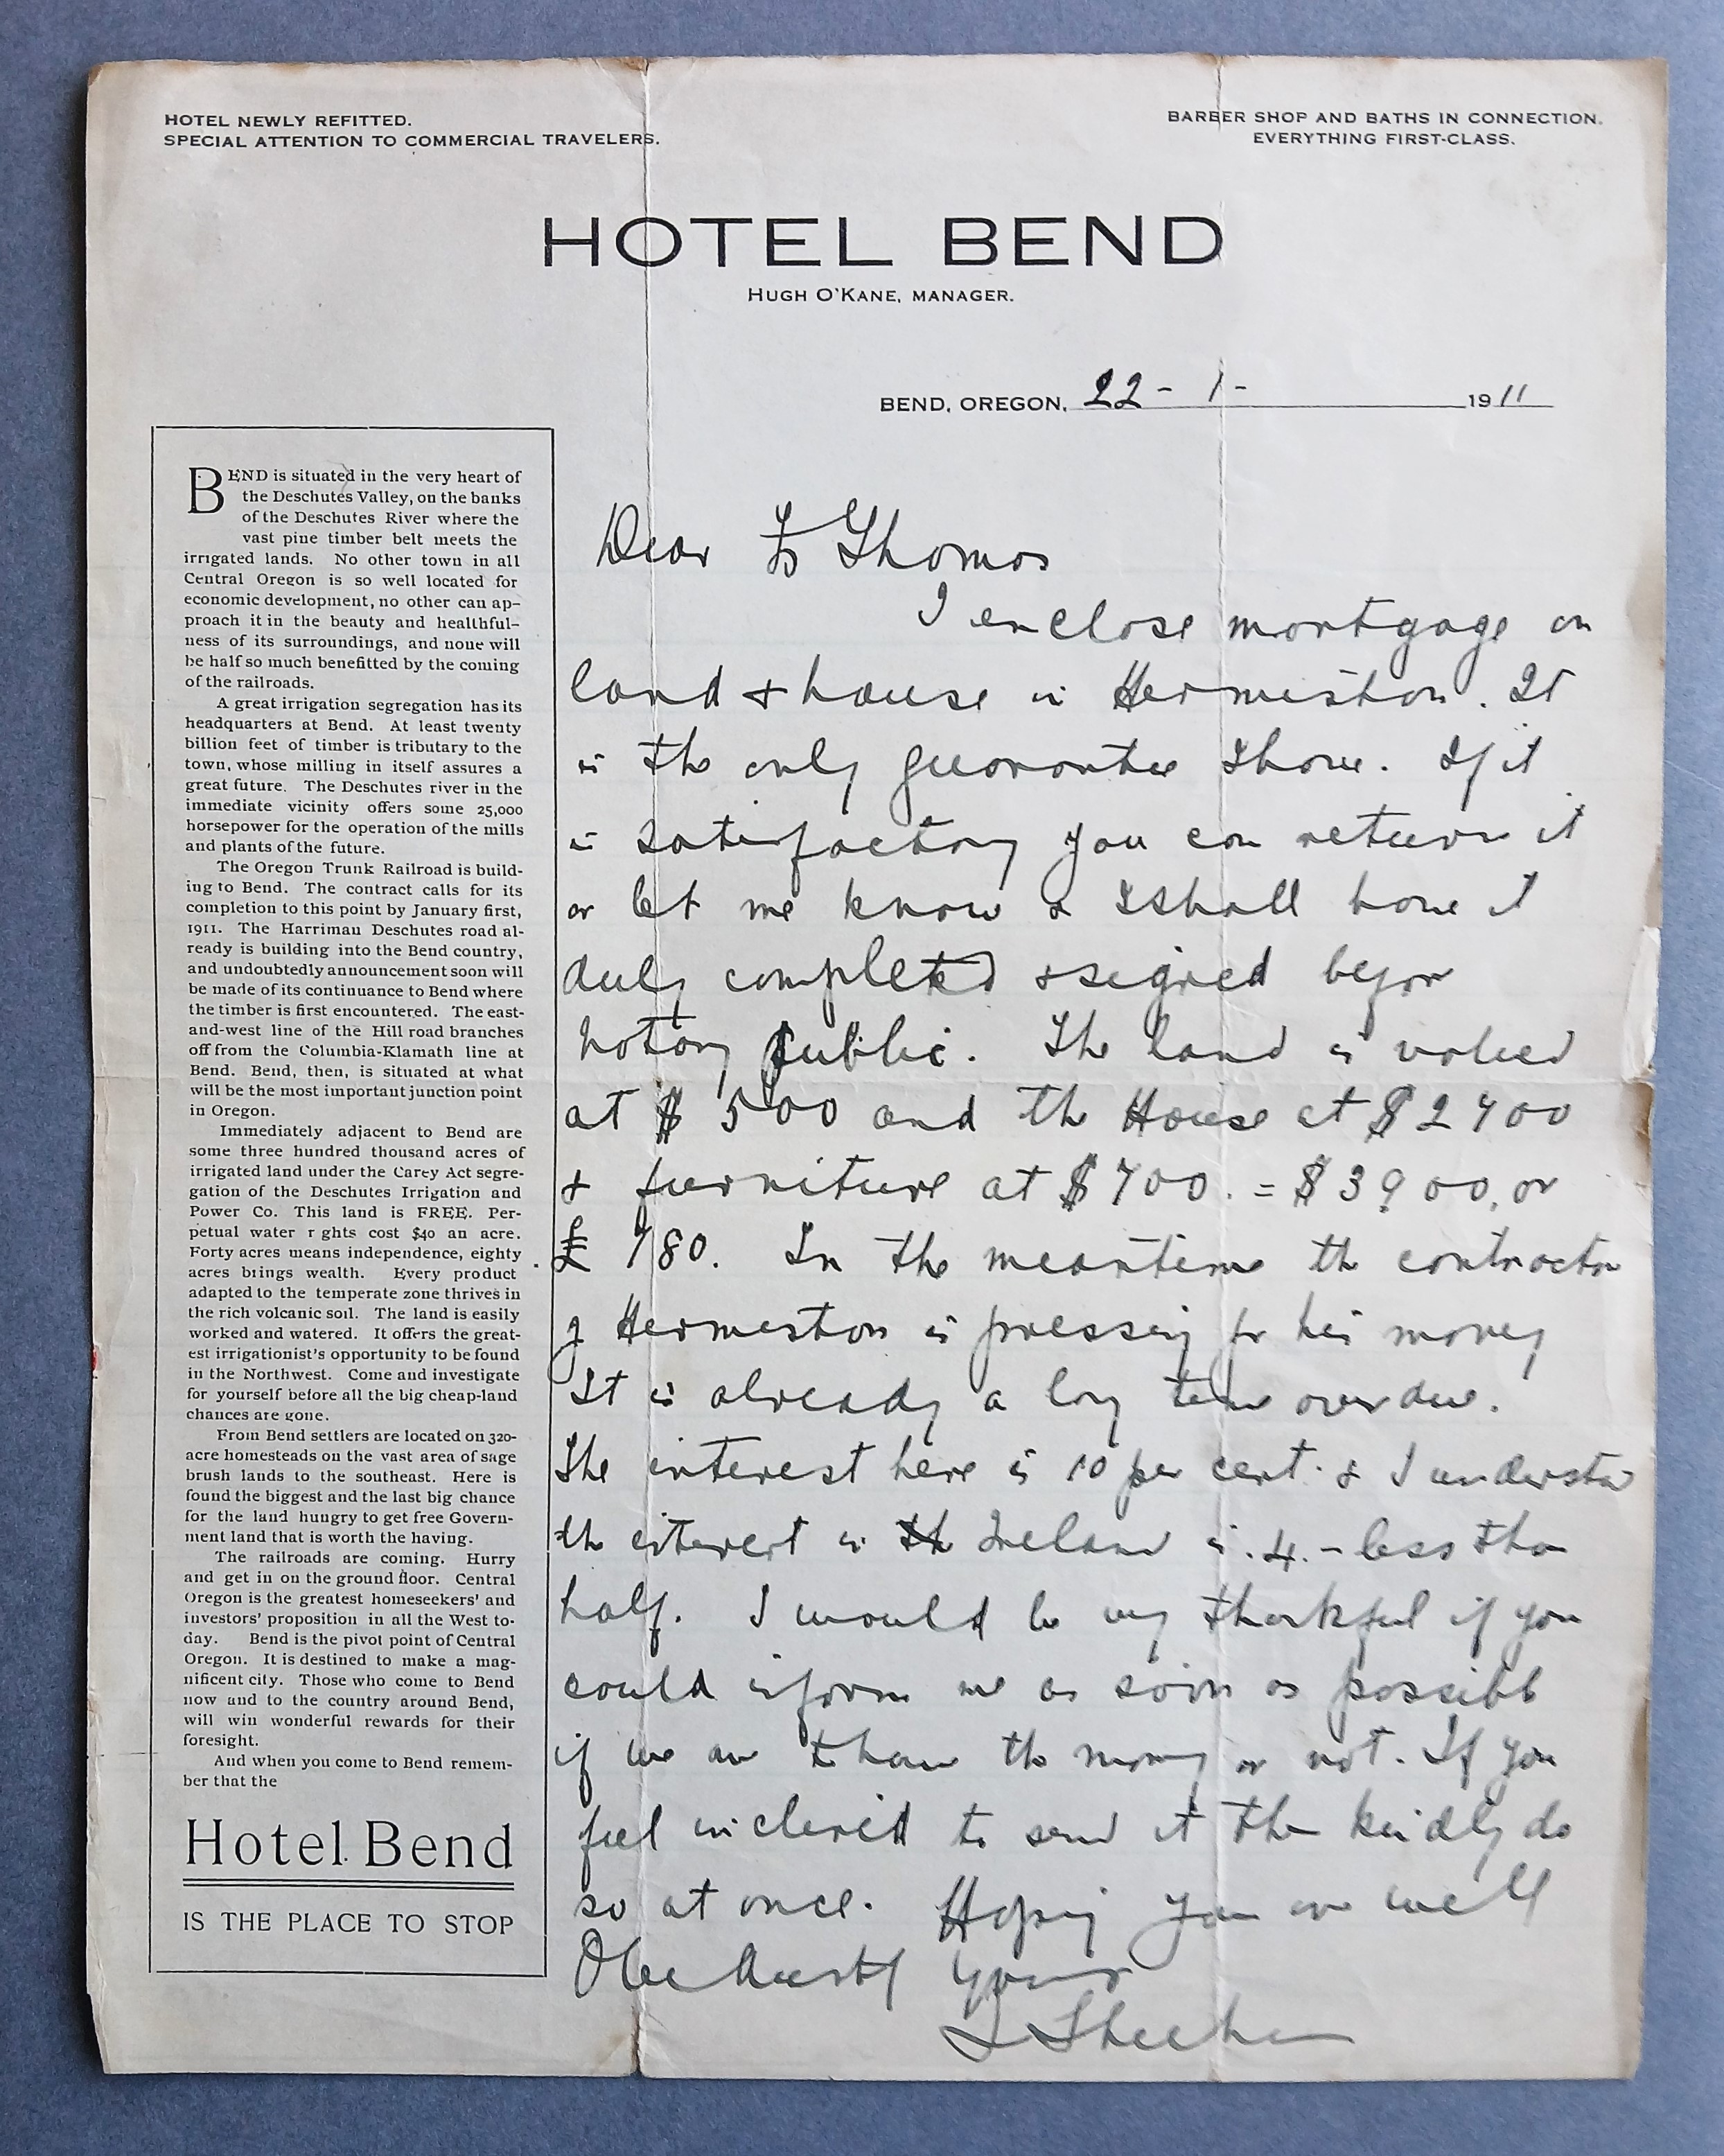 HOTEL NEWLY REFITTED.
SPECIAL ATTENTION TO COMMERCIAL TRAVELERS.
BARBER SHOP AND BATHS IN CONNECTION.
EVERYTHING FIRST-CLASS.
HOTEL BEND
HUGH O'KANE, MANAGER.
BEND, OREGON, 22 - 1 - 1911
BEND is situated in the very heart of
the Deschutes Valley, on the banks
of the Deschutes River where the
vast pine timber belt meets the
irrigated lands. No other town in all
Central Oregon is so well located for
economic development, no other can ap-
proach it in the beauty and healthful-
ness of its surroundings, and none will
be half so much benefitted by the coming
of the railroads.
A great irrigation segregation has its
headquarters at Bend. At least twenty
billion feet of timber is tributary to the
town, whose milling in itself assures a
great future. The Deschutes river in the
immediate vicinity offers some 25,000
horsepower for the operation of the mills
and plants of the future.
The Oregon Trunk Railroad is build-
ing to Bend. The contract calls for its
completion to this point by January first,
1911. The Harriman Deschutes road al-
ready is building into the Bend country,
and undoubtedly announcement soon will
be made of its continuance to Bend where
the timber is first encountered. The east-
and-west line of the Hill road branches
off from the Columbia-Klamath line at
Bend. Bend, then, is situated at what
will be the most important junction point
in Oregon.
Immediately adjacent to Bend are
some three hundred thousand acres of
irrigated land under the Carey Act segre-
gation of the Deschutes Irrigation and
Power Co. This land is FREE. Per-
petual water r ghts cost $40 an acre.
Forty acres means independence, eighty
acres brings wealth. Every product
adapted to the temperate zone thrives in
the rich volcanic soil. The land is easily
worked and watered. It offers the great-
est irrigationist's opportunity to be found
in the Northwest. Come and investigate
for yourself before all the big cheap-land
chances are gone.
From Bend settlers are located on 320-
acre homesteads on the vast area of sage
brush lands to the southeast. Here is
found the biggest and the last big chance
for the land hungry to get free Govern-
ment land that is worth the having.
The railroads are coming. Hurry
and get in on the ground floor. Central
Oregon is the greatest homeseekers' and
investors' proposition in all the West to-
day. Bend is the pivot point of Central
Oregon. It is destined to make a mag-
nificent city. Those who come to Bend
now and to the country around Bend,
will win wonderful rewards for their
foresight.
And when you come to Bend remem-
ber that the
Hotel Bend
IS THE PLACE TO STOP
Dear Fr Thomas
I enclose mortgage on
land & house in Hermiston. It
is the only guarantee I have. If it
is satisfactory you can return it
or let me know & I shall have it
duly completed & signed before
notary public. The land is valued
at $ 500 and the House at $ 2700
& furniture at $ 700. = $ 3900, or
£ 780. In the meantime the contractor
of Hermiston is pressing for his money
It is already a long time over due.
The interest here is 10 per cent. & I understand
the interest in the Ireland is .4. - less than
half. I would be very thankful if you
could inform me as soon as possible
if we are to have the money or not. If you
feel inclined to send it then kindly do
so at once. Hoping you are well
Yours
L Sheehan